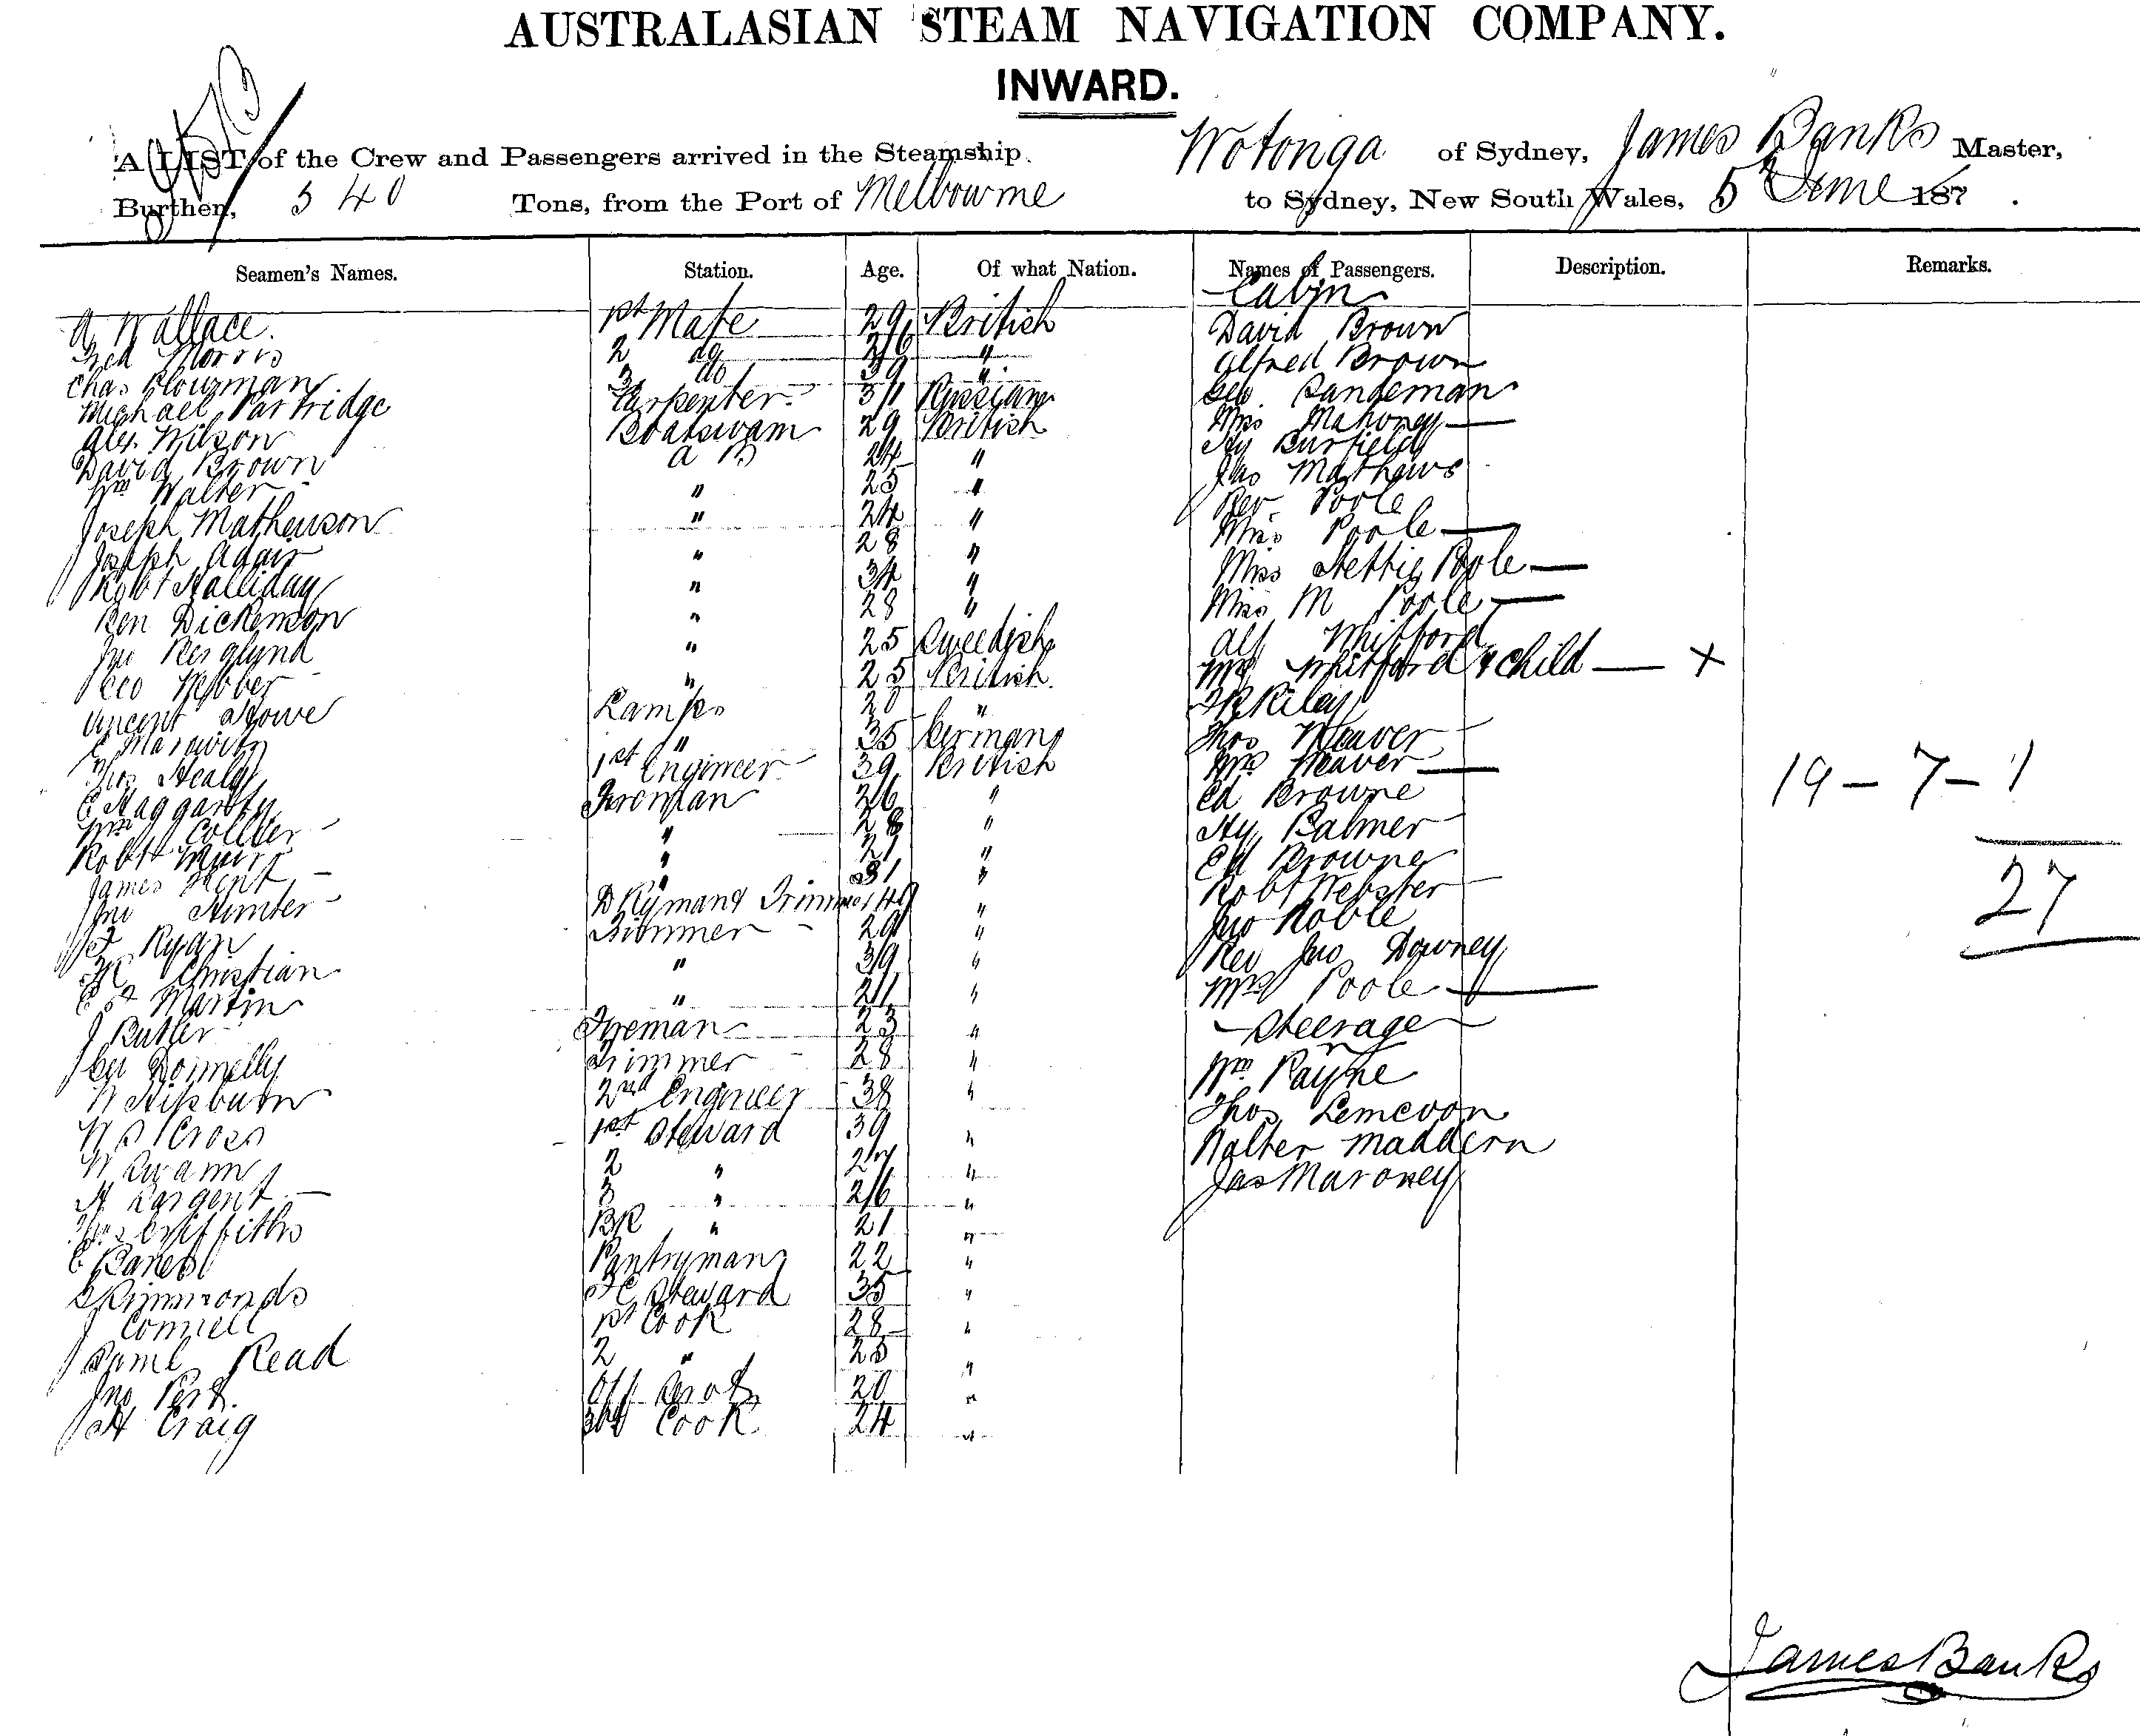 AUSTRALASIAN STEAM NAVIGATION COMPANY.
INWARD.
A LIST of the Crew and Passengers arrived in the Steamship Wotonga of Sydney, James Banks Master,
Burthen, 540 Tons, from the Port of Melbourne to Sydney, New South Wales, 5 June 187
Seamen's Names. Station. Age. Of what Nation. Names of Passengers. Description. Remarks.
Cabin
A Wallace 1st Mate 29 British David Brown
Fred Morris 2 do 26 " Alfred Brown
Chas 3 do 39 " Geo. Sandeman
Michael Partridge Carpenter 31 Russian Miss Mahoney
Alex. Wilson Boatswain 29 British Hy Burfield
David Brown A B 24 " Jas Mathews
Wm Walter " 25 " Rev Poole
Joseph Mathewson " 24 " Miss Poole
Joseph Adair " 28 " Miss Nettie Poole
Robt Halliday " 34 " Miss M Poole
Ben Dickenson " 28 " Alf Whitford
Jno Berglund " 25 Sweedish Mrs Whitford & child — x
Geo Webber " 25 British Riley
Vincent Lamps 20 " Thos Weaver
" 35 German Mrs Weaver
Thos Healy 1st Engineer 39 British Ed Browne
E Haggarthy Fireman 26 " Hy Palmer
Wm Collier " 28 " Ed Browne
Robt Muir " 21 " Robt Webster
James Kent " 31 " Jno Noble
Jno Hunter Dkyman & Trimmer 40 " Rev Jno Downey
Ryan Trimmer 29 " Mrs Poole
Christian " 39 "
Martin " 21 " Steerage
J Butler Fireman 23 " Wm Payne
Donnelly Trimmer 28 " Thos
W Hepburn 2nd Engineer 38 " Walter Maddern
W Cross 1st Steward 39 " Jas Maroney
W Swann 2 " 27 "
H Sargent 3 " 26 "
Griffiths BR " 21 "
Pantryman 22 "
Simmonds F C Steward 35 "
J Connell 1st Cook 28 "
Saml Read 2 " 25 "
Jno 20 "
H Craig 3rd Cook 24 "
19 - 7 - 1
27
James Banks